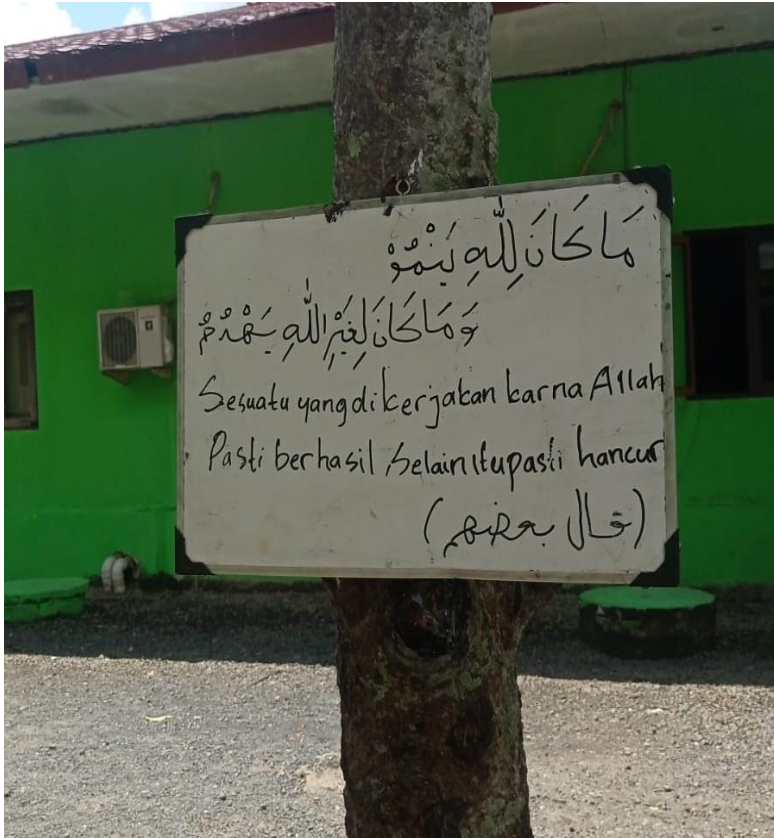 مَا كَانَ لِلّٰهِ يَنْمُوْ
وَمَا كَانَ لِغَيْرِ اللّٰهِ يَهْدِمُ
Sesuatu yang dikerjakan karna Allah
Pasti berhasil, Selain itu pasti hancur
(قال بعضهم)